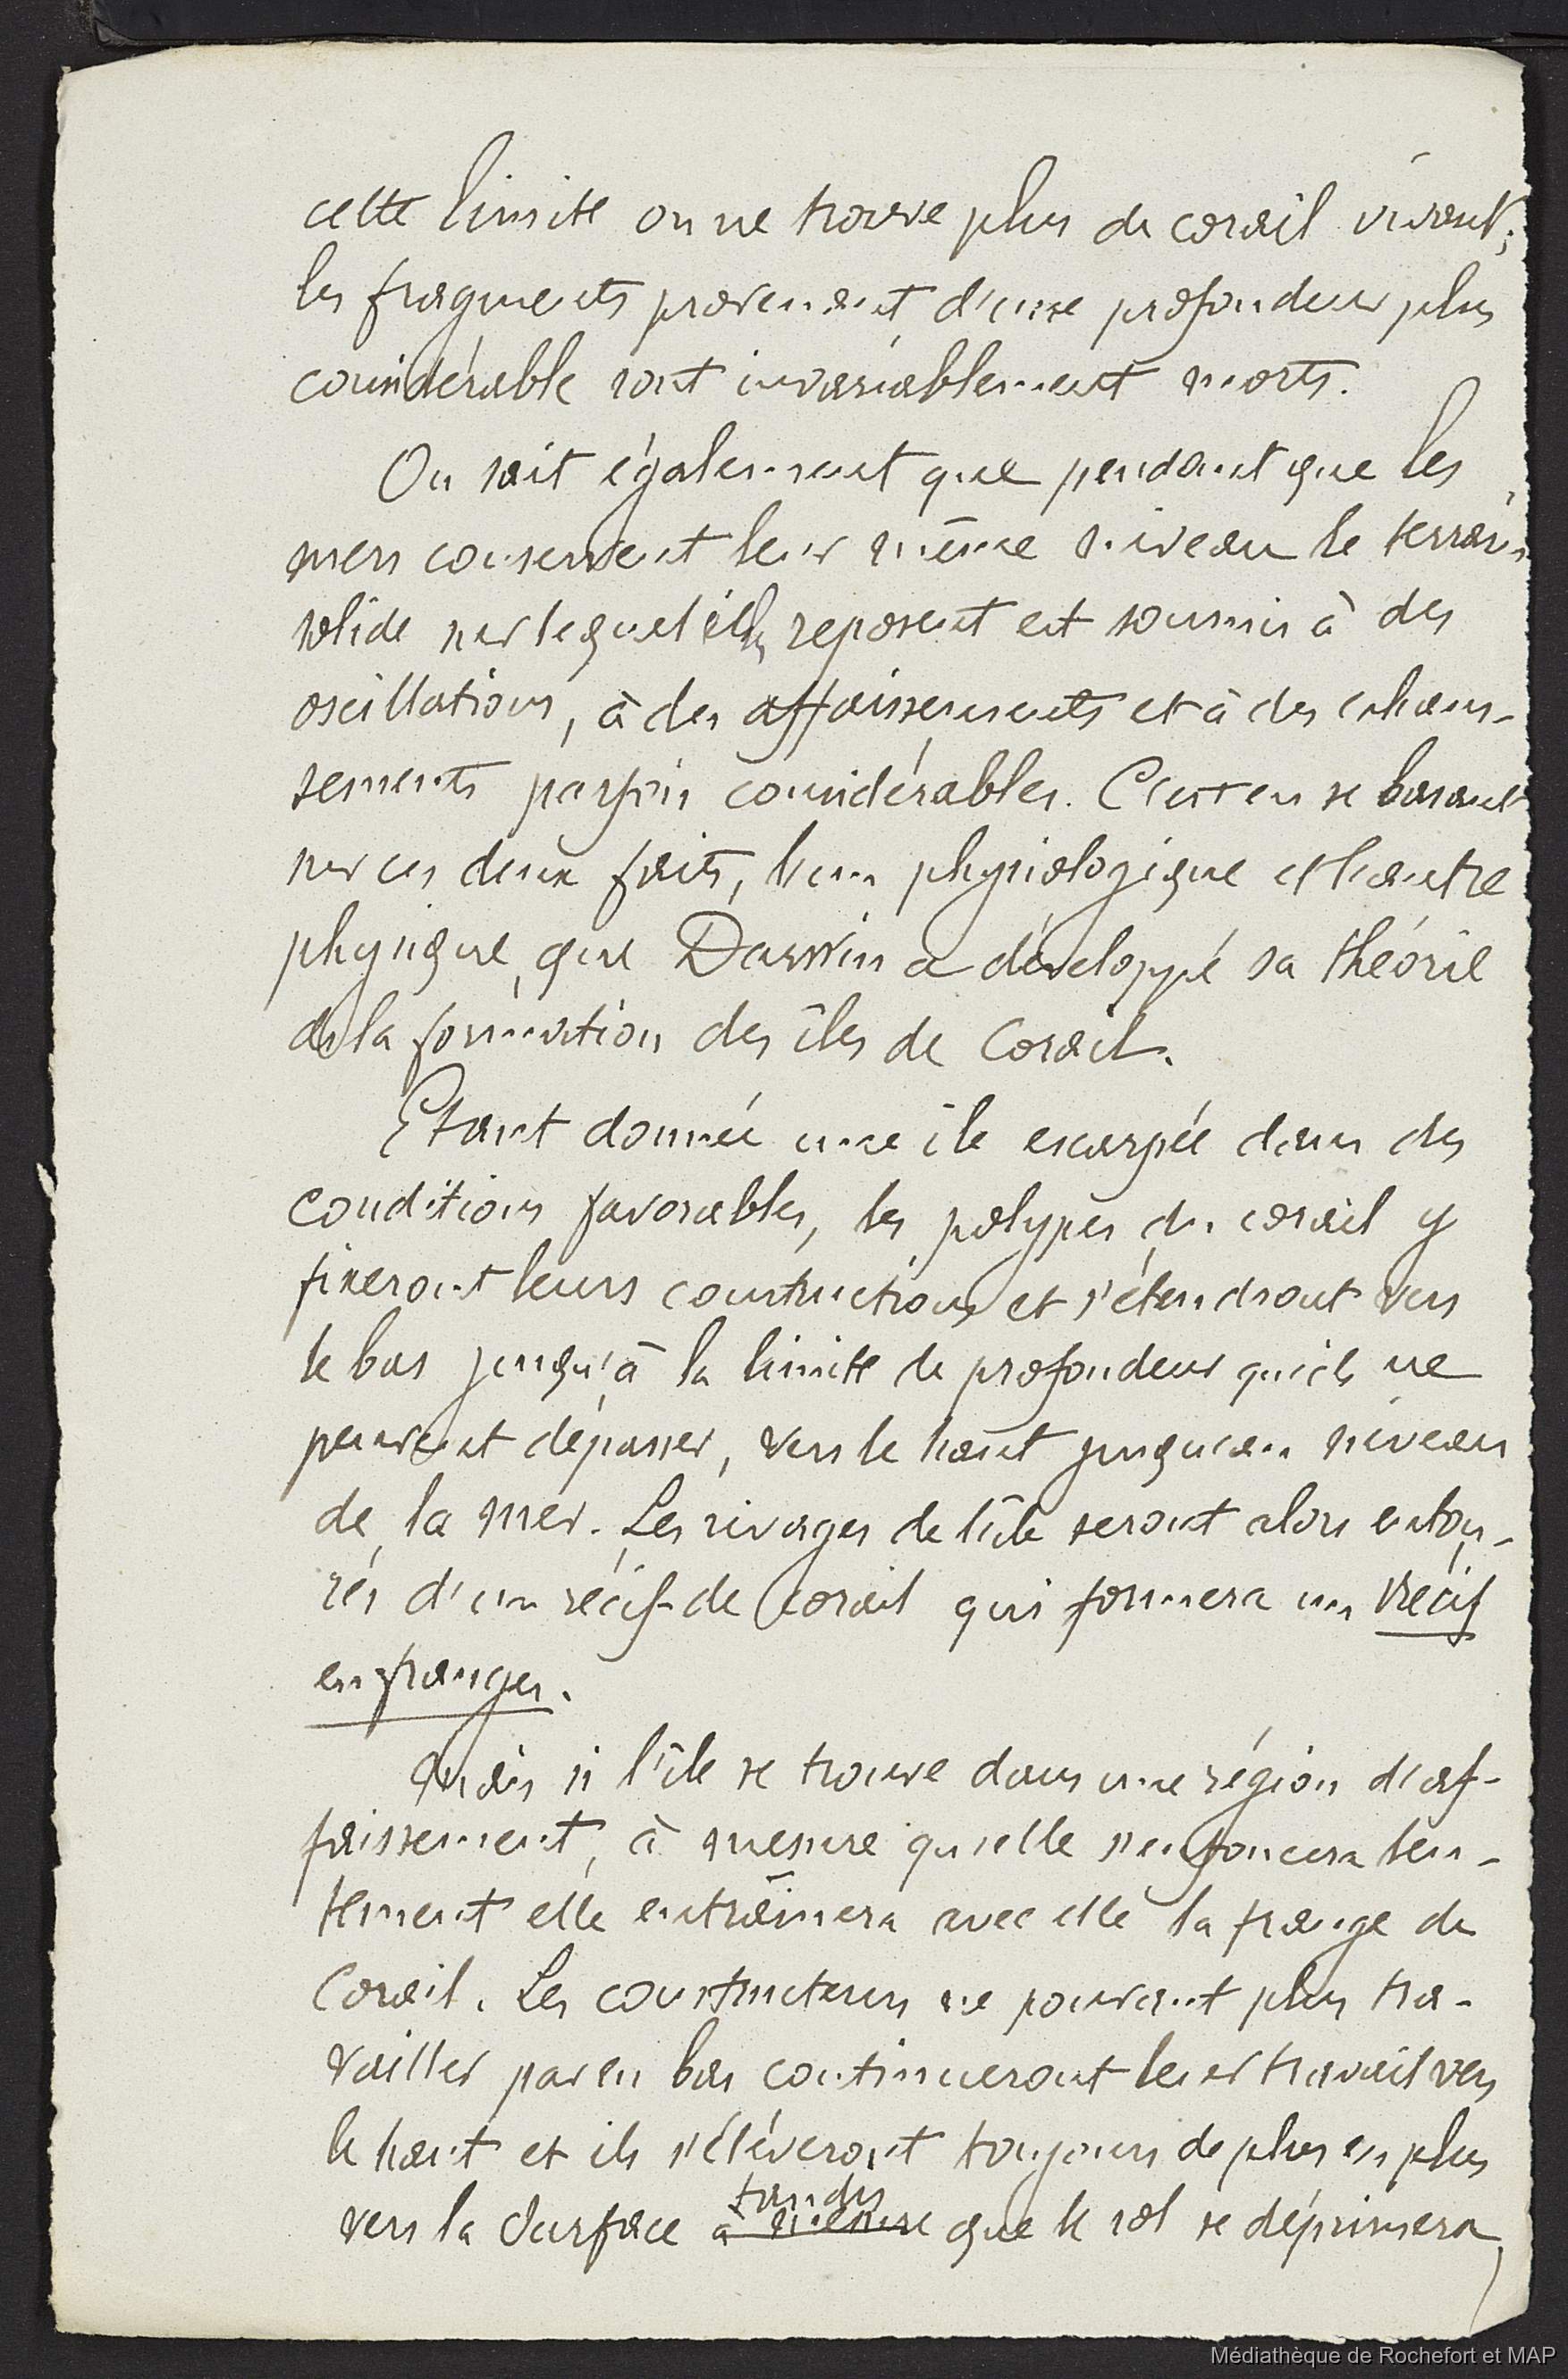 cette limite on ne trouve plus de corail vivant;
les fragments provenant d'une profondeur plus
considérable sont invariablement morts.
On sait également que pendant que les
mers conservent leur même niveau le terrain
solide sur lequel elles reposent est soumis à des
oscillations, à des affaissements et à des exhaus-
sements parfois considérables. C'est en se basant
sur ces deux faits, l'un physiologique et l'autre
physique, que Darwin a développé sa théorie
de la formation des îles de Corail.
Etant donnée une île escarpée dans des
conditions favorables, les polypes du corail y
fixeront leurs constructions et s'étendront vers
le bas jusqu'à la limite de profondeur qu'ils ne
peuvent dépasser, vers le haut jusqu'au niveau
de la mer. Les rivages de l'île seront alors entou-
rés d'un récif de Corail qui formera un récif
en franges.
Mais si l'île se trouve dans une région d'af-
faissement, à mesure qu'elle s'enfoncera len-
tement elle entraînera avec elle la frange de
Corail. Les constructeurs ne pouvant plus tra-
vailler par en bas continueront leur travail vers
le haut et ils s'élèveront toujours de plus en plus
tandis
vers la surface à mesure que le sol se déprimera,
Médiathèque de Rochefort et MAP